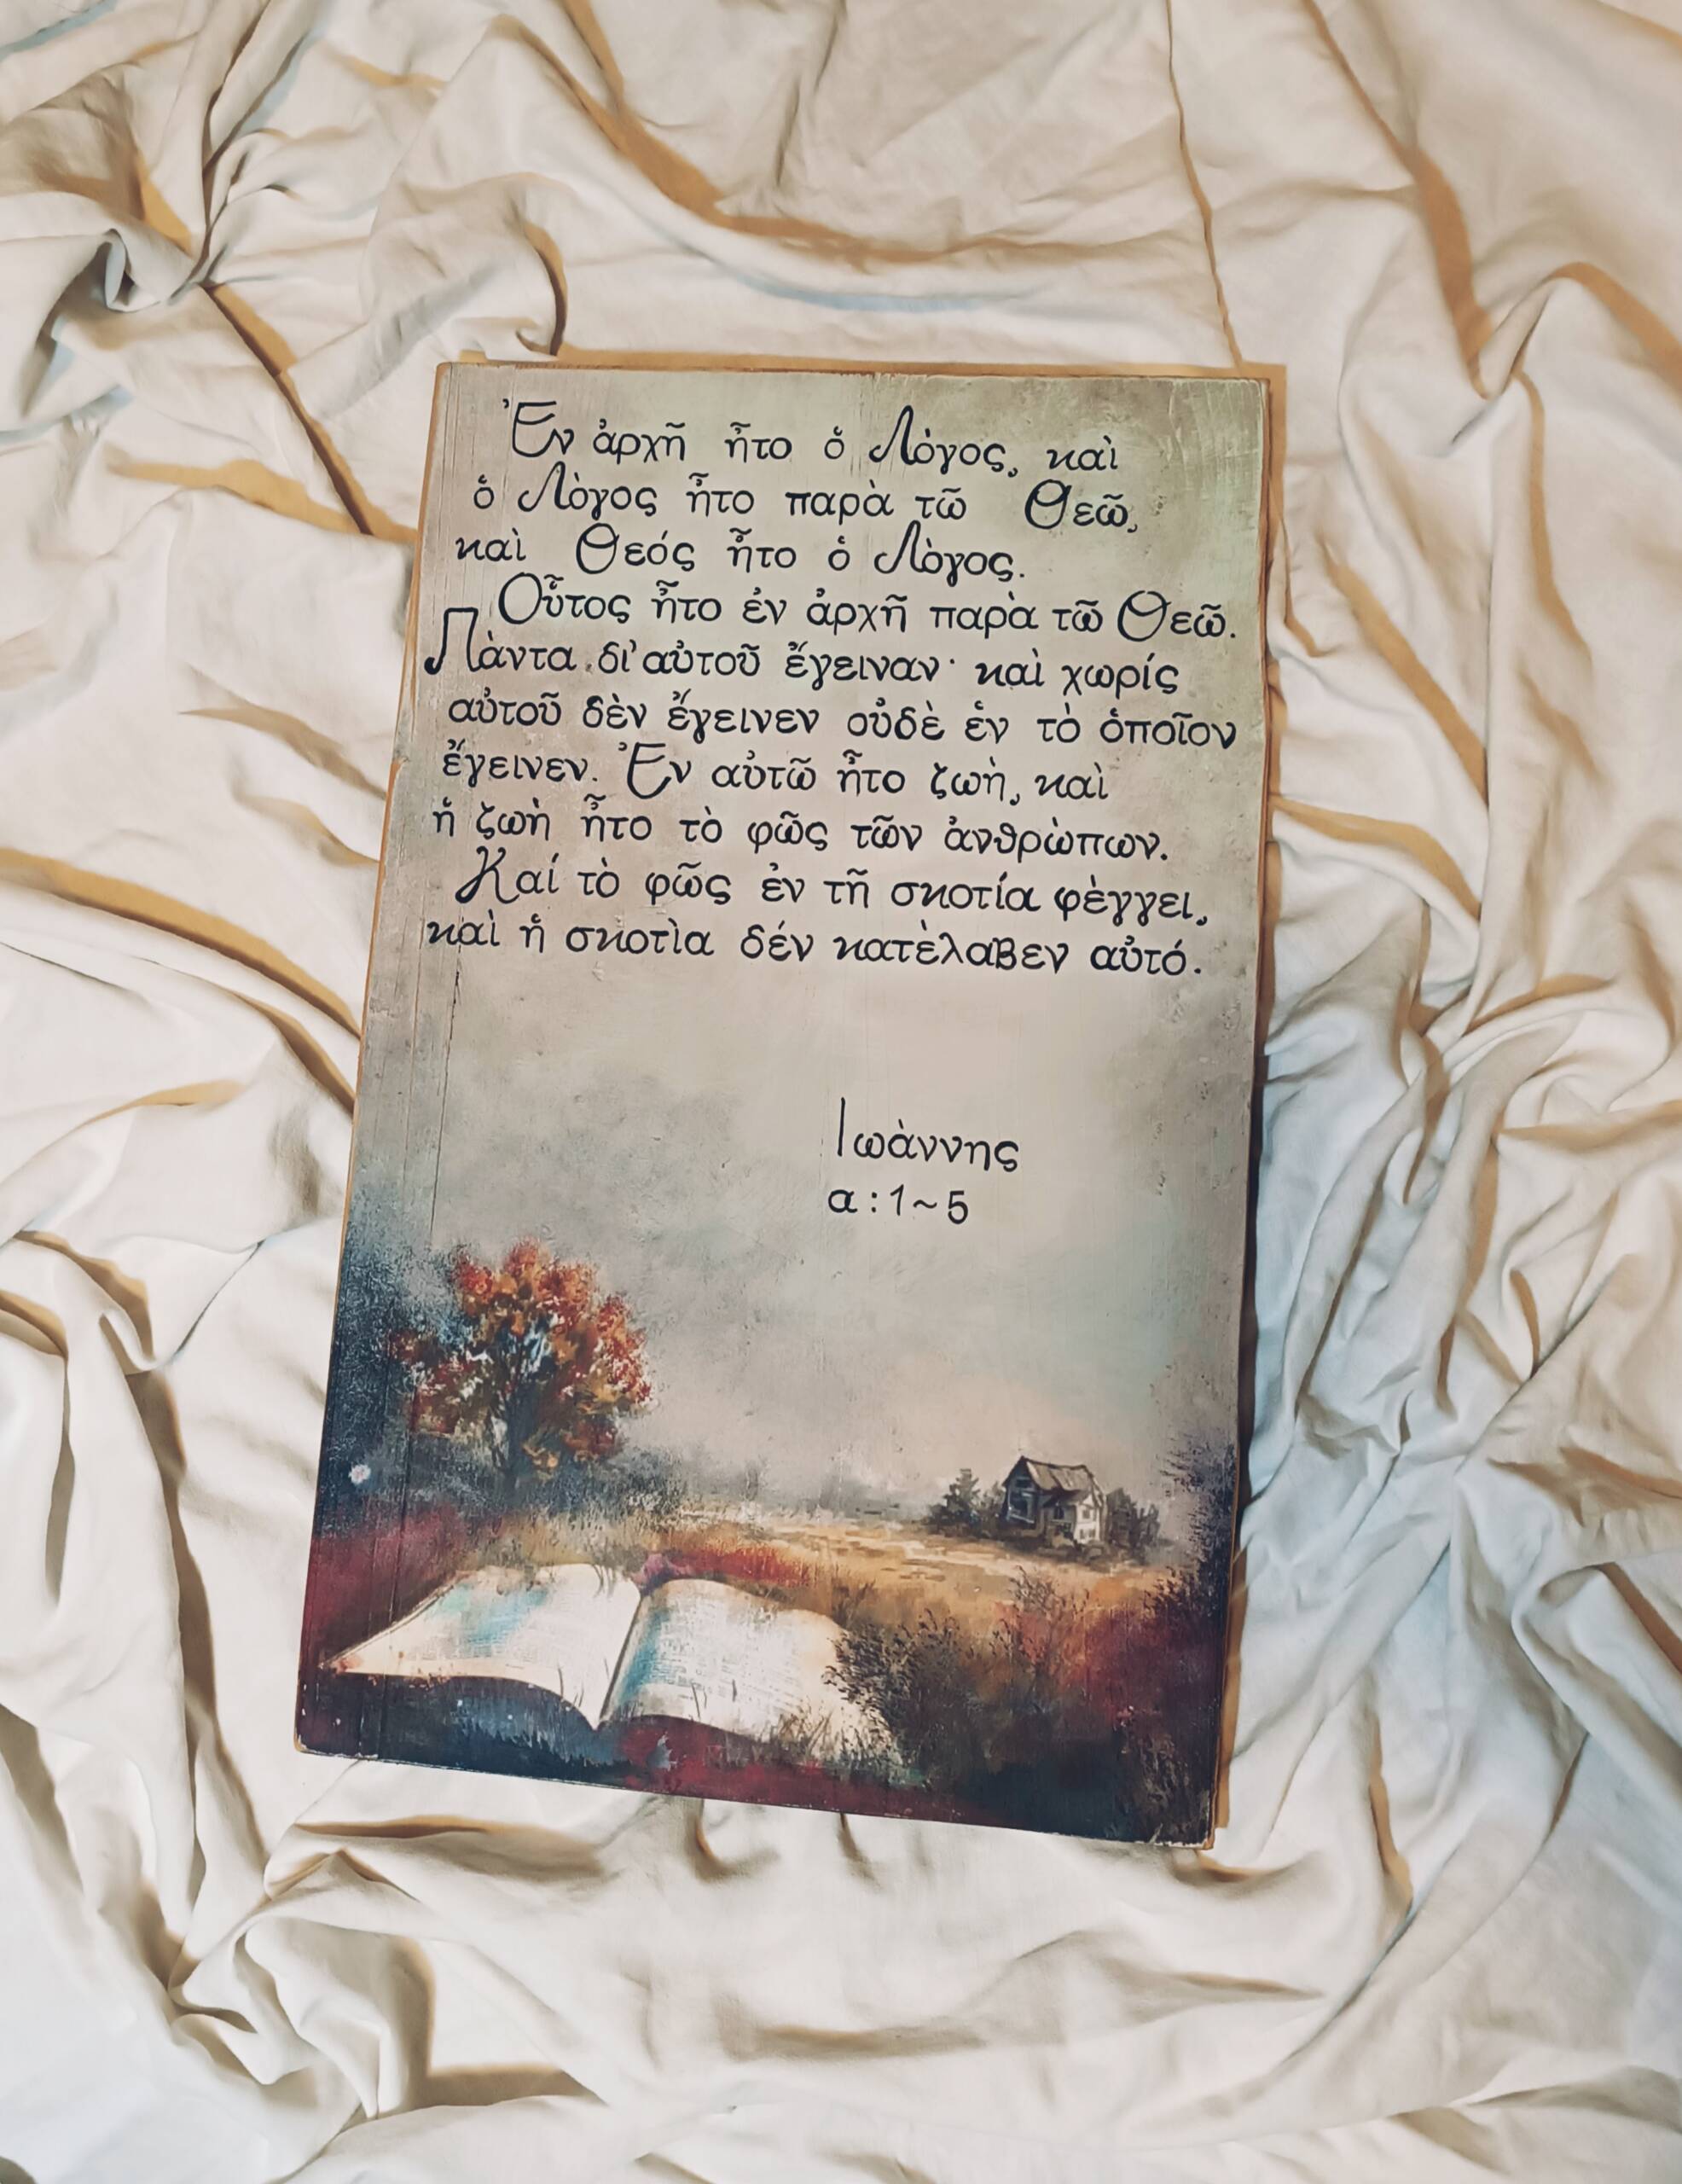 Ἐν ἀρχῆ ἦτο ὁ Λόγος, καὶ
ὁ Λὸγος ἦτο παρὰ τῶ Θεῶ,
καὶ Θεός ἦτο ὁ Λὸγος.
Οὖτος ἦτο ἐν ἀρχῆ παρὰ τῶ Θεῶ.
Πὰντα δι' αὐτοῦ ἔγειναν· καὶ χωρίς
αὐτοῦ δὲν ἔγεινεν οὐδὲ ἐν τὸ ὁποῖον
ἔγεινεν. Ἐν αὐτῶ ἦτο ζωὴ, καὶ
ἡ ζωὴ ἦτο τὸ φῶς τῶν ἀνθρὼπων.
Καί τὸ φῶς ἐν τῆ σκοτία φὲγγει,
καὶ ἡ σκοτὶα δέν κατὲλαβεν αὐτό.
Ιωὰννης
α : 1 ~ 5